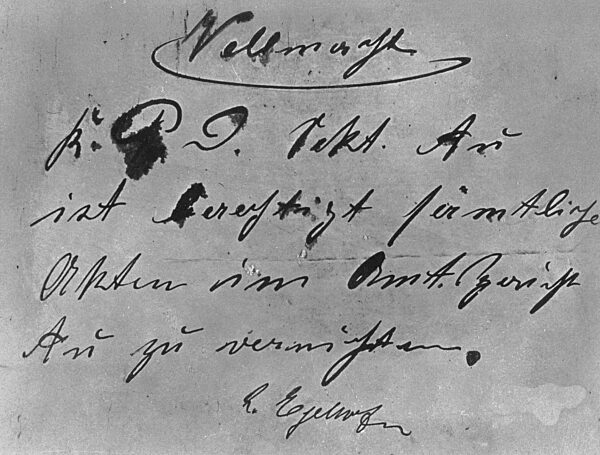 Vollmacht
K. P. D. Sekt. Au
ist berechtigt sämtliche
Akten im Amt. Gericht
Au zu vernichten.
R. Egelhofer